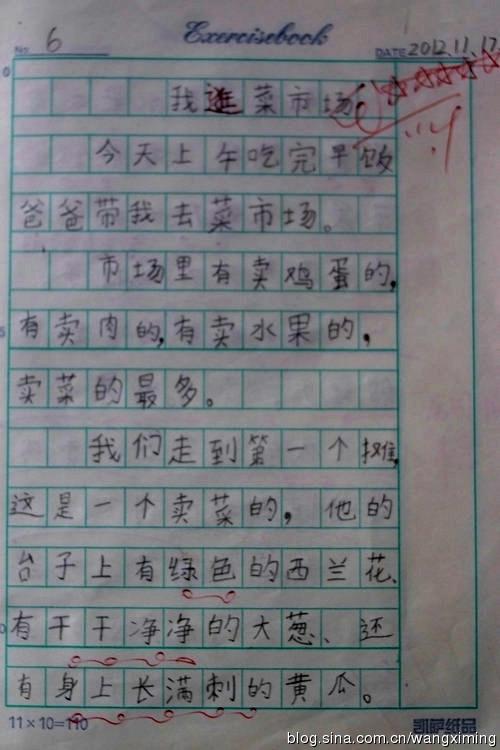 Exercisebook
No. 6
DATE 2012.11.17
我逛菜市场
今天上午吃完早饭
爸爸带我去菜市场。
市场里有卖鸡蛋的,
有卖肉的,有卖水果的,
卖菜的最多。
我们走到第一个摊,
这是一个卖菜的,他的
台子上有绿色的西兰花、
有干干净净的大葱、还
有身上长满刺的黄瓜。
11×10=110
凯萨纸品
blog.sina.com.cn/wangximing